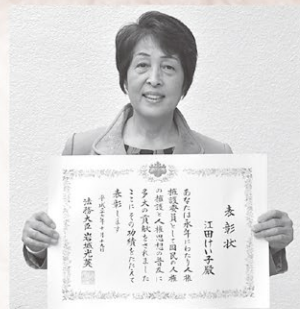 表彰状
江田けい子殿
あなたは永年にわたり人権
擁護委員として国民の人権
の擁護と人権思想の普及に
多大の貢献をされました
ここにその功績をたたえて
表彰します
法務大臣 岩城光英